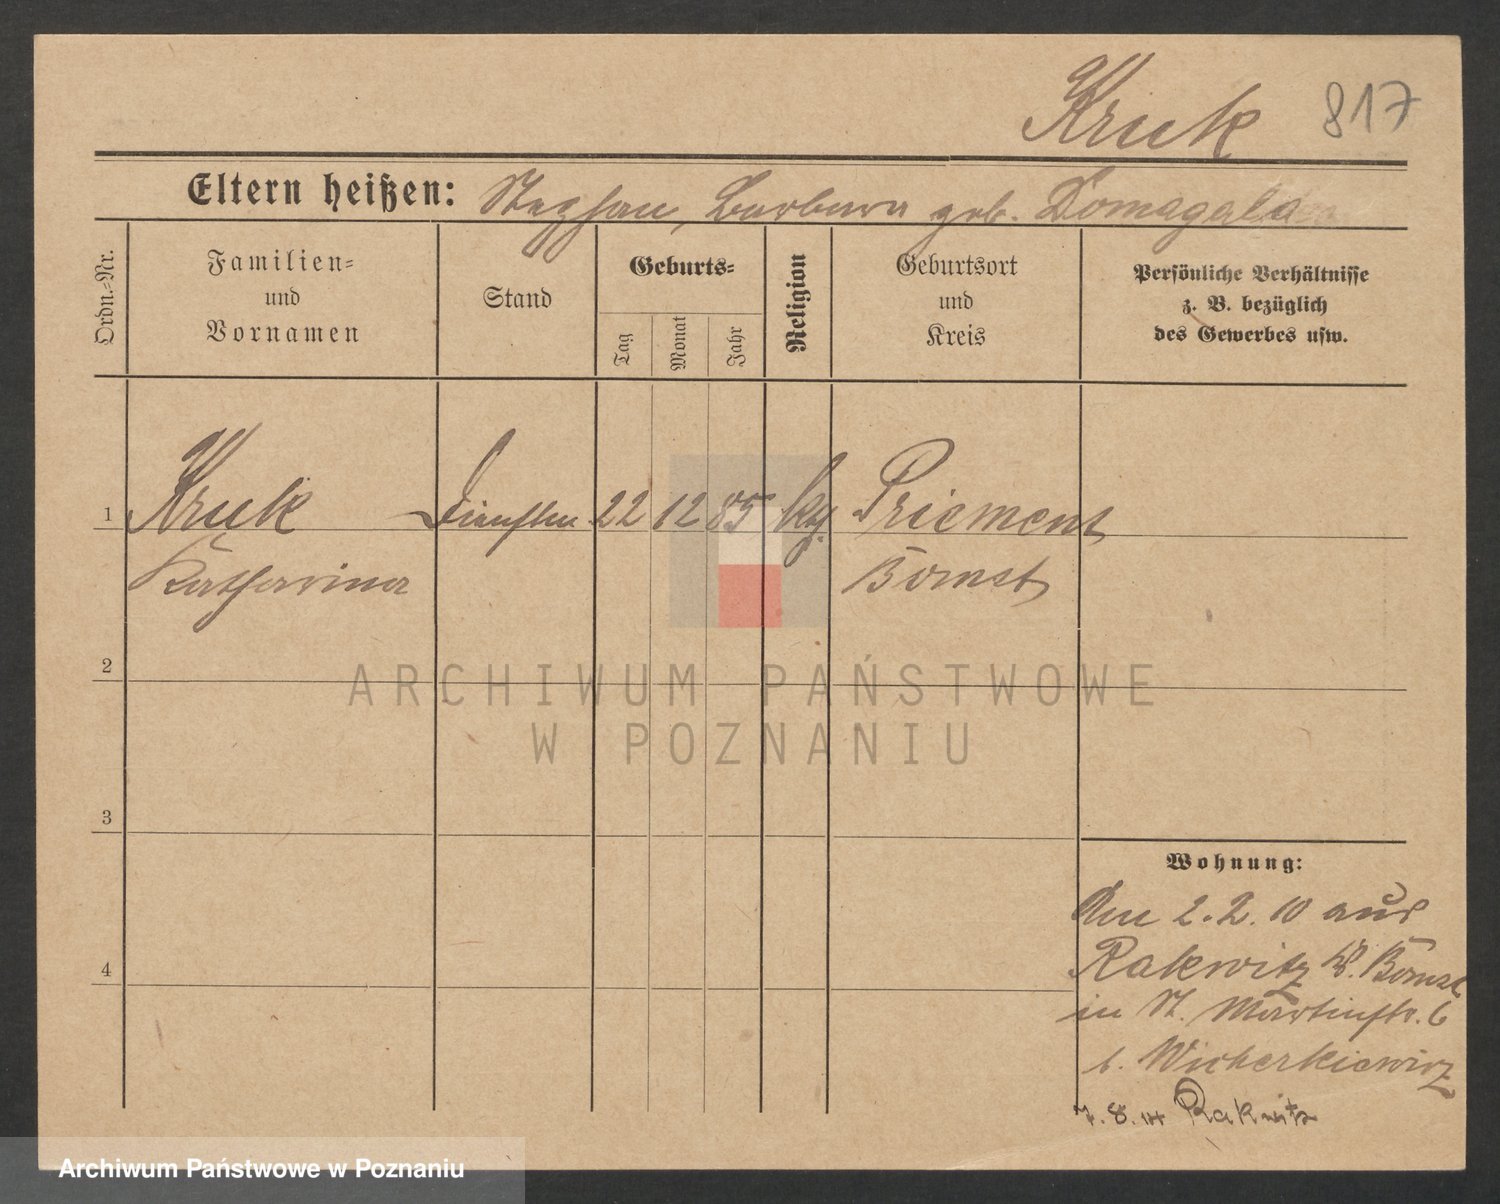 Kruk 817
Eltern heißen: Stephan, Barbara geb. Domagala
Ordn.-Nr.
Familien-
und
Vornamen
Stand
Geburts-
Tag
Monat
Jahr
Religion
Geburtsort
und
Kreis
Persönliche Verhältnisse
z. B. bezüglich
des Gewerbes usw.
1 Kruk 22 12 85 Priement
Katharina Bomst
2
ARCHIWUM PAŃSTWOWE
W POZNANIU
3
Wohnung:
Am 2.2.10 aus
4 Rakwitz Kr. Bomst
in St. Martinstr. 6
b. Wicherkiewicz
7.8. Rakwitz
Archiwum Państwowe w Poznaniu